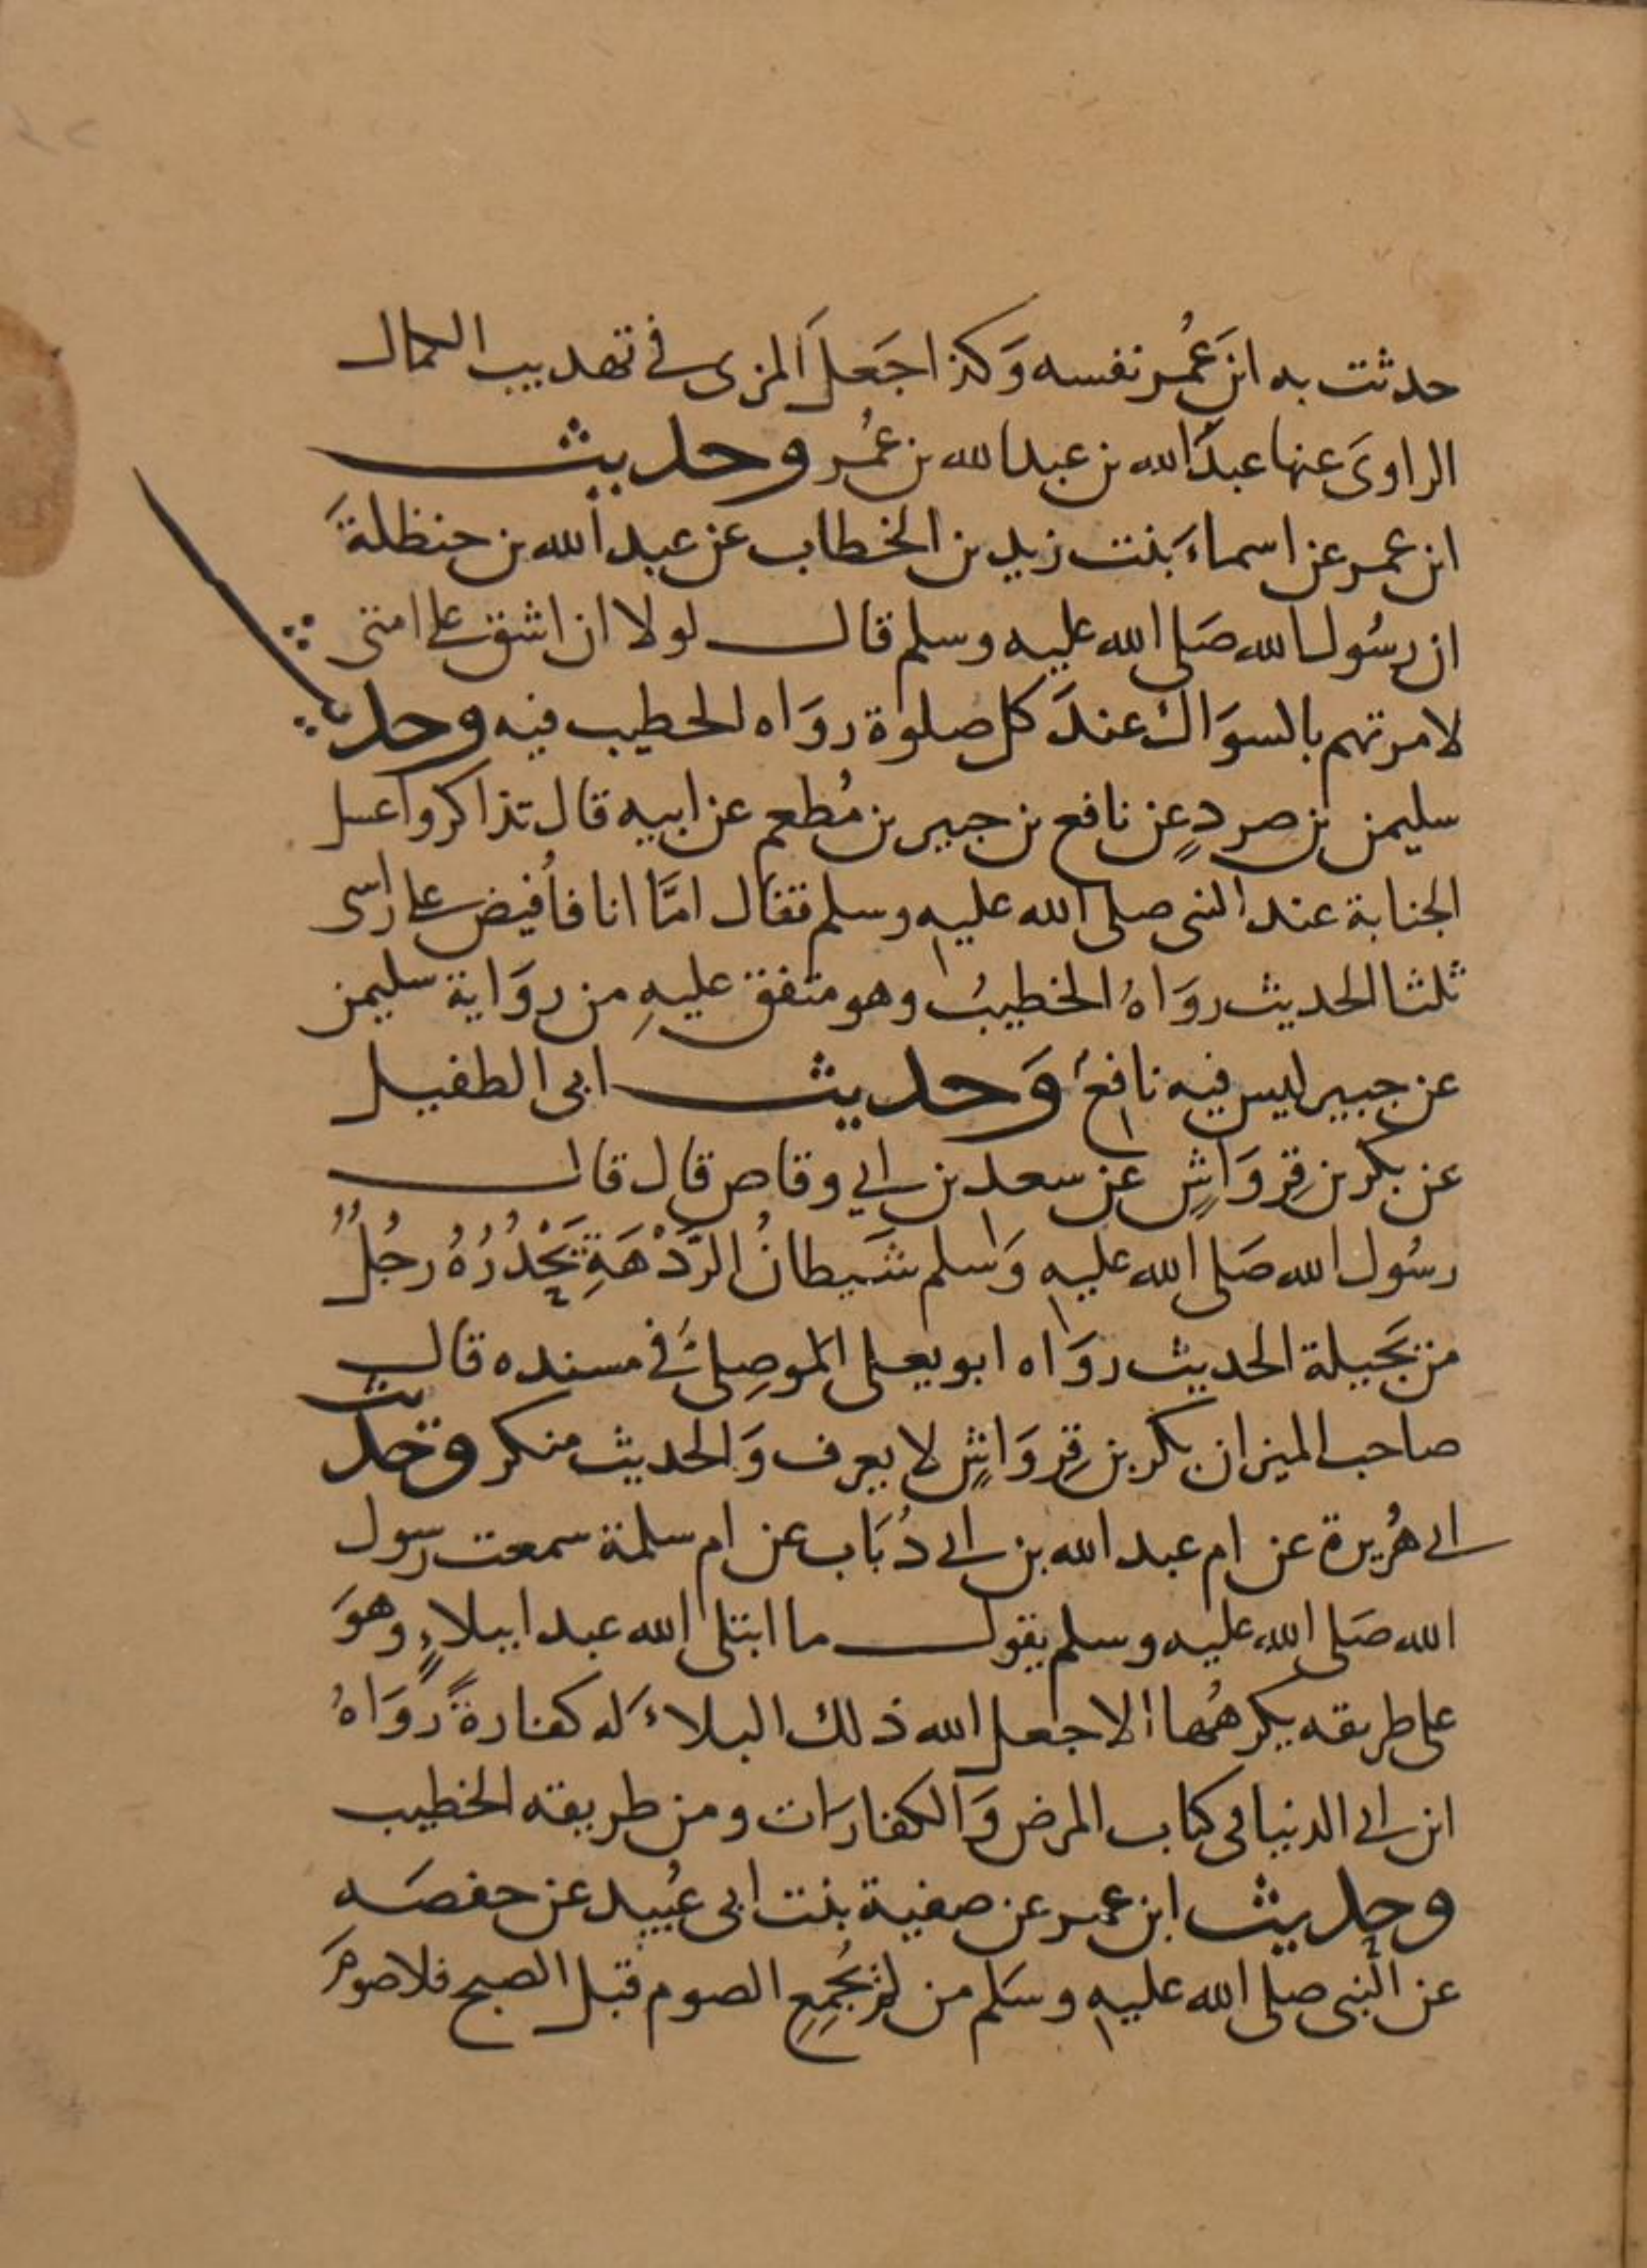 حدثت به ابن عُمر نفسه وَكذا جَعل المزى فى تهذيب الكمال
الراوىَ عنها عبدَ الله بن عبد الله بن عُمر وحديث
ابن عمر عن اسماءَ بنت زيد بن الخطاب عن عبد الله بن حنظلةَ
ان رسُول الله صَلى الله عليه وسلم قال لولا ان اشق على امتى
لامرتهم بالسوَاك عندَ كل صلوة روَاه الخطيب فيه وحديث
سليمن بن صردٍ عن نافع بن جبير بن مُطعم عن ابيه قال تذاكروا غسل
الجنابة عند النبى صلى الله عليه وسلم فقال امَّا انا فأُفيض على راسى
ثلثا الحديث روَاهُ الخطيبُ وهو متفق عليهِ من روَاية سليمن
عن جبير ليس فيه نافعٌ وَحديث ابى الطفيل
عن بكر بن قِروَاشٍ عن سعد بن ابي وقاص قال قال
رسُول الله صَلى الله عليه وَسلم شَيطانُ الرَّدْهَةِ يَحْدُرُهُ رجُلٌ
من بَجيلة الحديث روَاه ابو يعلى الموصِلىُّ فى مسنده قال
صاحب الميزان بكر بن قِروَاشٍ لا يعرف وَالحديث منكر وحديث
ابى هُريرة عن ام عبد الله بن ابى ذُبَاب عن ام سلمة سمعت رسول
الله صَلى الله عليه وسلم يقول ما ابتلى الله عبدا ببلاءٍ وهوَ
على طريقه يكرهُها الا جعل الله ذلك البلاءَ له كفارةً روَاهُ
ابن ابى الدنيا فى كتاب المرض وَالكفارَات ومن طريقه الخطيب
وحديث ابن عمر عن صفية بنت ابى عُبيد عن حفصَه
عن النبى صلى الله عليه وسَلم من لم يُجمِعِ الصوم قبل الصبح فلا صومَ